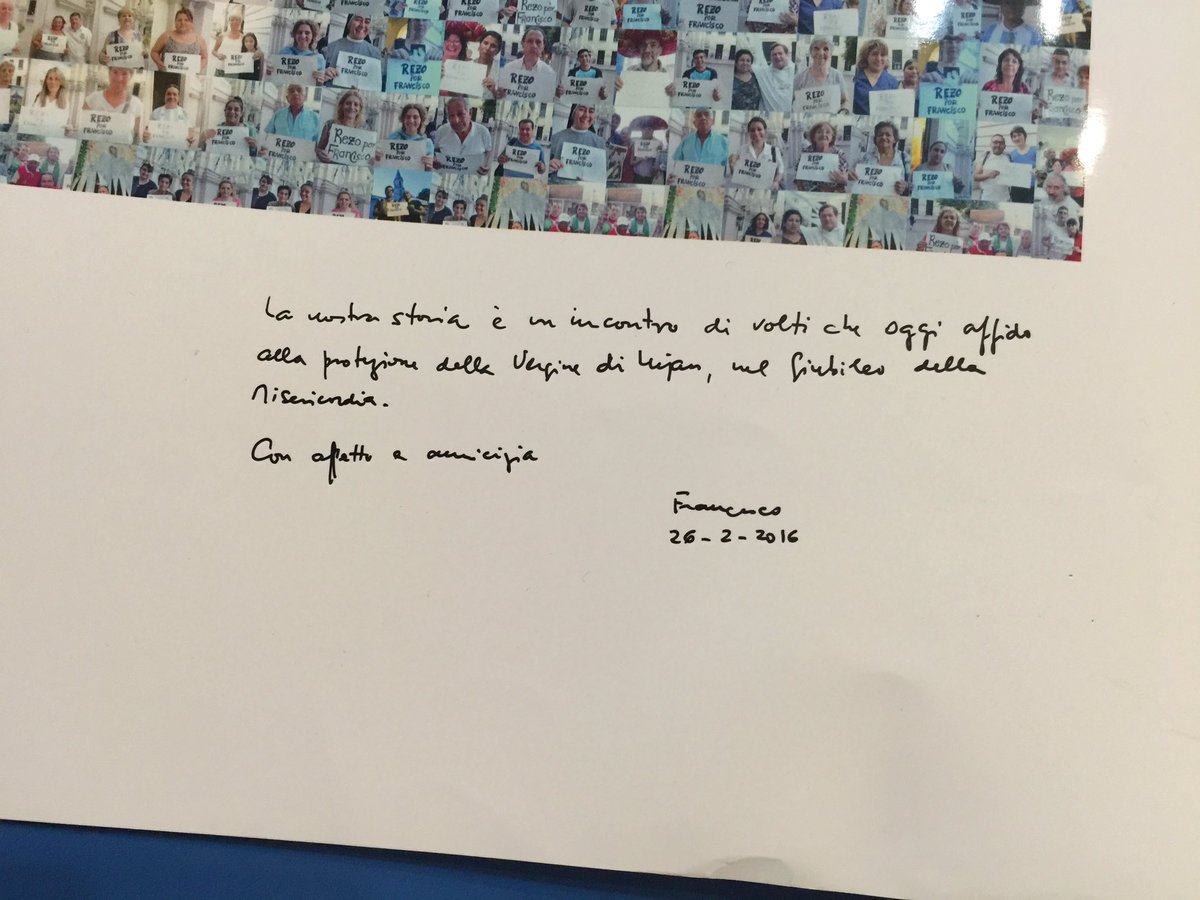 REZO POR FRANCISCO
Rezo por Francisco
La nostra storia è un incontro di volti che oggi affido
alla protezione della Vergine di Lujan, nel Giubileo della
Misericordia.
Con affetto e amicizia
Francesco
26-2-2016